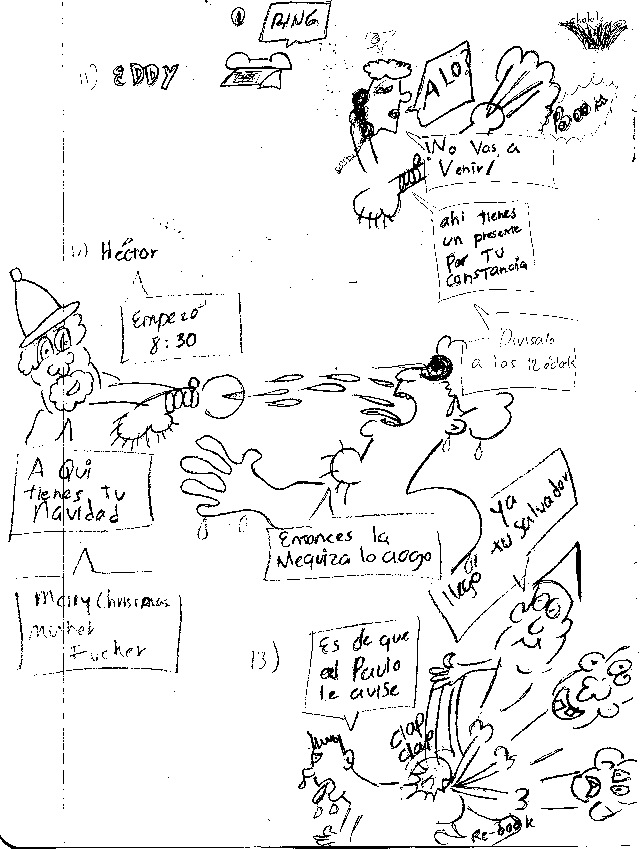 RING
11) EDDY
ALO?
¡No Vas a
Venir!
ahi tienes
un presente
Por Tu
constancia
12) Héctor
Empezo
8:30
Divisalo
a los
A Qui
tienes tu
Navidad
Entonces la
Mequiza lo ahogo
Ya
llego tu Salvador
Merry Christmas
Mother
Fucker
13)
Es de que
el Paulo
le avise
clap
clap
Re-book